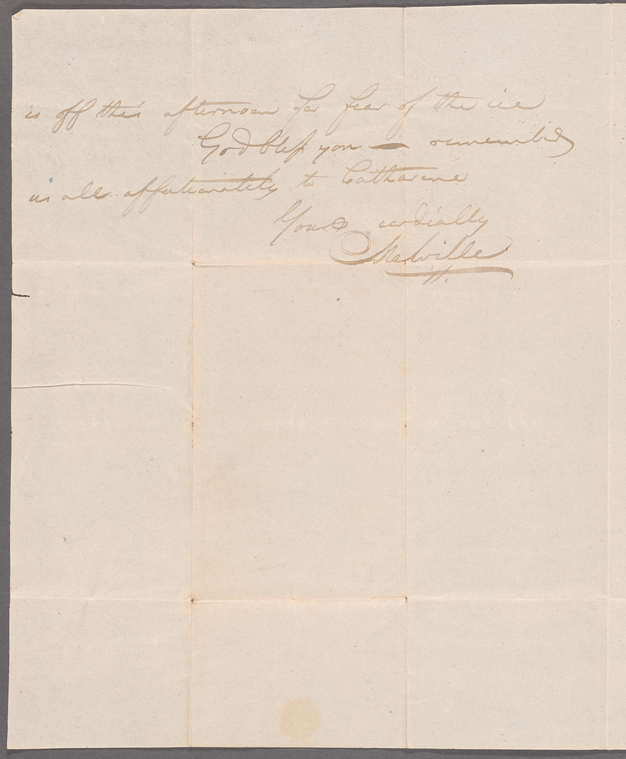 is off this afternoon for fear of the ice
God bless you — remember
us all affectionately to Catharine
Yours cordially
Melville